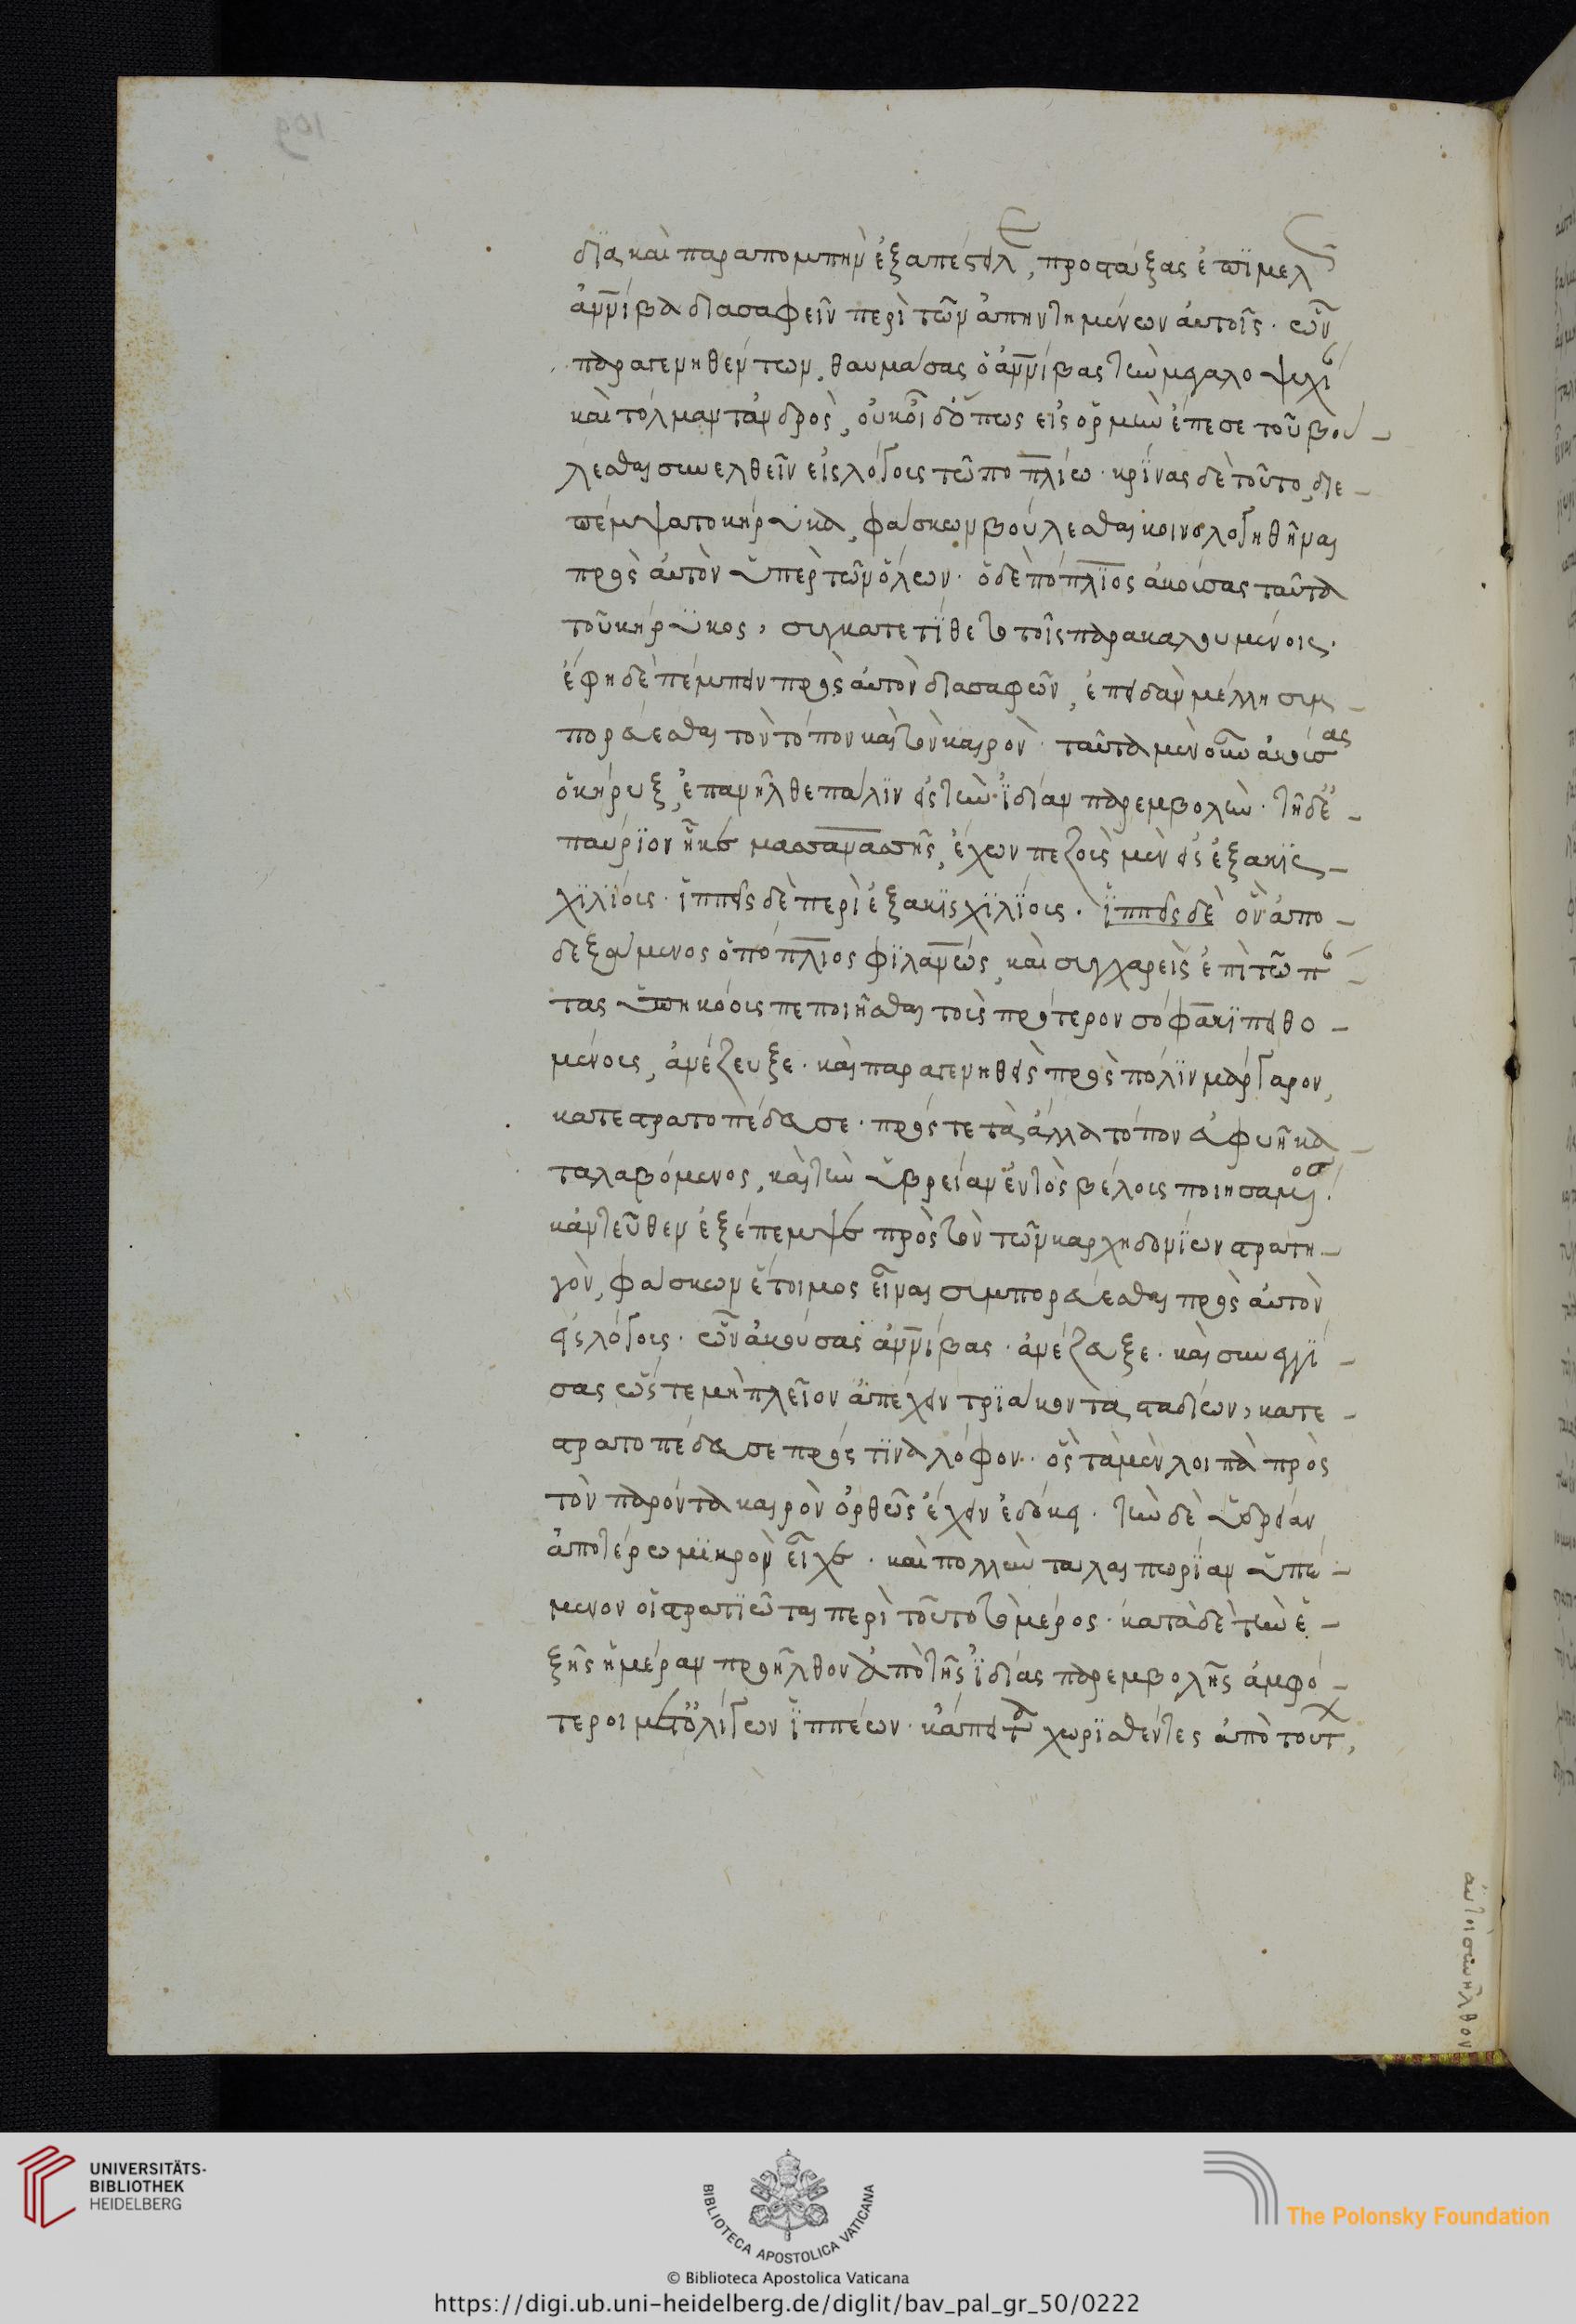 δϊα, καὶ παραπομπὴν ἐξαπέστειλε, προστάξας ἐπϊμελῶς
ἀννίβα διασαφεῖν περὶ τῶν ἀπηντημένων αὐτοῖς. ὧν
παραγενηθέντων, θαυμάσας ὁ ἀννίβας τὴν μεγαλοψυχί
καὶ τόλμαν τἀνδρὸς, οὐκ οἶδ' ὅπως εἰς ὁρμὴν ἔπεσε τοῦ βού-
λεσθαι συνελθεῖν εἰς λόγους τῶ ποπλίω. κρίνας δὲ τοῦτο, διε-
πέμψατο κήρυκα, φάσκων βούλεσθαι κοινολογηθῆναι
πρὸς αὐτὸν ὑπὲρ τῶν ὅλων. ὁ δὲ πόπλϊος ἀκούσας ταῦτα
τοῦ κήρυκος, συγκατετίθετο τοῖς παρακαλουμένοις.
ἔφη δὲ πέμπειν πρὸς αὐτὸν διασαφῶν, ἐπειδὰν μέλλη συμ-
πορεύεσθαι τὸν τόπον καὶ τὸν καιρὸν. ταῦτα μὲν οὖν ἀκούσας
ὁ κήρυξ, ἐπανῆλθε πάλϊν εἰς τὴν ἰδίαν παρεμβολὴν. τῆ δ' ἐ-
παύρϊον ἧκε μασσανάσσης, ἔχων πεζοὺς μὲν εἰς ἑξακϊς-
χϊλϊους. ἱππεῖς δὲ περὶ ἑξακϊςχϊλϊους. ἱππεῖς δὲ ὃν ἀπο-
δεξάμενος ὁ πόπλιος φϊλανως, καὶ συγχαρεὶς ἐπὶ τῶ πάν-
τας ὑπηκόους πεποιῆσθαι τοὺς πρότερον σόφακϊ πειθο-
μένους, ἀνέζευξε. καὶ παραγενηθεὶς πρὸς πόλϊν μάργαρον,
κατεστρατοπέδευσε. πρός τε τὰ ἄλλα τόπον εὐφυῆ κα-
ταλαβόμενος, καὶ τὴν ὑδρείαν ἐντὸς βέλους ποιησάμενος.
κἀντεῦθεν ἐξέπεμψε πρὸς τὸν τῶν καρχηδονϊων στρατη-
γὸν, φάσκων ἕτοιμος εἶναι συμπορεύεσθαι πρὸς αὐτὸν
εἰς λόγους. ὧν ἀκούσας ἀννίβας. ἀνέζευξε. καὶ συνεγγϊ-
σας ὥστε μὴ πλεῖον ἀπέχειν τρϊάκοντα σταδίων, κατε-
στρατοπέδευσε πρός τϊνα λόφον. ὃς τὰ μὲν λοιπὰ πρὸς
τὸν παρόντα καιρὸν ὀρθῶς ἔχειν ἐδόκει. τὴν δὲ ὑδρείαν
ἀποτέρω μϊκρὸν εἶχε. καὶ πολλὴν ταλαιπωρϊαν ὑπέ-
μενον οἱ στρατϊῶται περὶ τοῦτο τὸ μέρος. κατὰ δὲ τὴν ἑ-
ξῆς ἡμέραν προῆλθον ἀπὸ τῆς ἰδίας παρεμβολῆς ἀμφό-
τεροι μετ' ὀλίγων ἱππέων. κἄπειτα χωρϊσθέντες ἀπὸ τούτ,
αὐτοὶ συνῆλθον
UNIVERSITÄTS-
BIBLIOTHEK
HEIDELBERG
BIBLIOTECA APOSTOLICA VATICANA
The Polonsky Foundation
© Biblioteca Apostolica Vaticana
https://digi.ub.uni-heidelberg.de/diglit/bav_pal_gr_50/0222